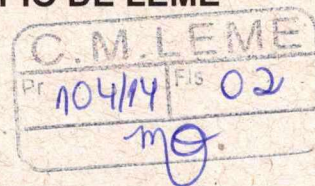 PIO DE LEME
C.M.LEME
Pr 104/14 Fls 02